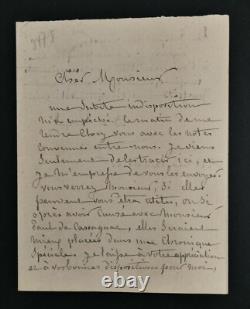 Cher Monsieur
une subite indisposition
m'a empêché le matin de me
rendre chez vous avec les notes
convenues entre nous. Je viens
seulement de les tracer ici, et
je m'empresse de vous les envoyer
vous verrez Monsieur, si elles
peuvent vous être utiles, ou si
après avoir causé avec Monsieur
Paul de Cassagnac, elles seraient
mieux placées dans une Chronique
Spéciale. Je laisse à votre appréciation
et à vos bonnes dispositions pour moi,
thecollectibles